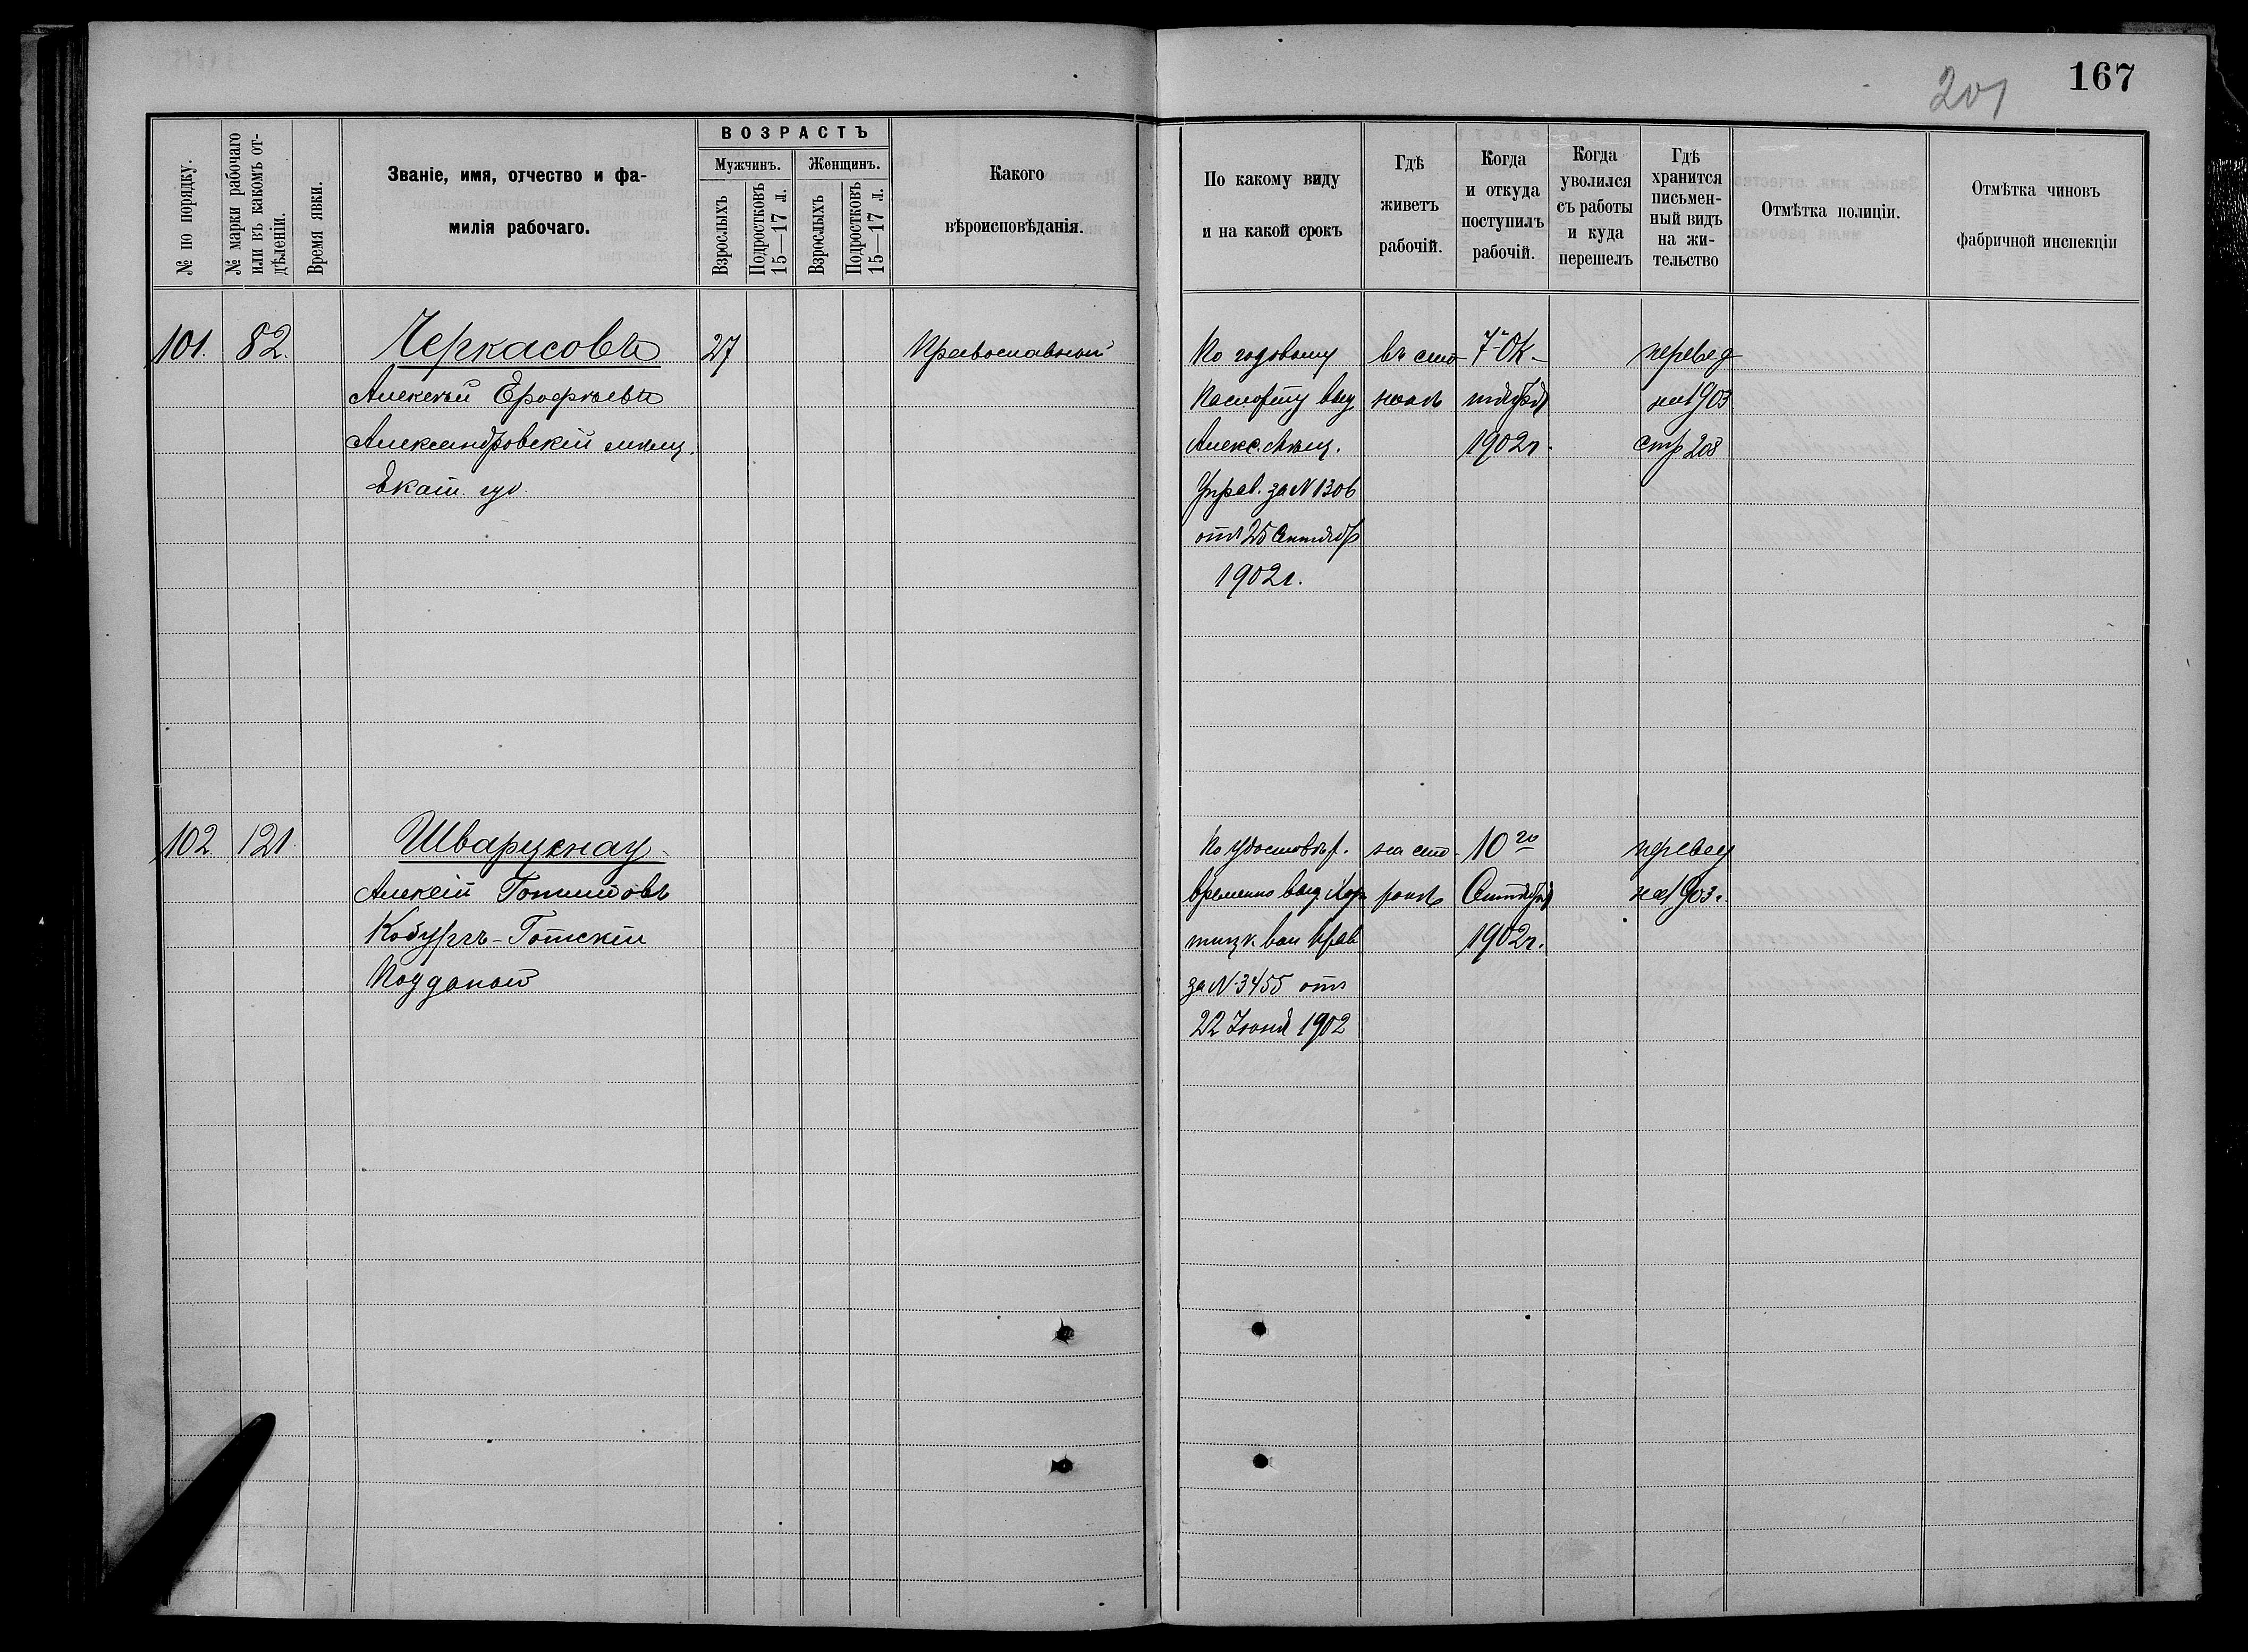 167
201
№ по порядку.
№ марки рабочаго
или въ какомъ от-
дѣленіи.
Время явки.
Званіе, имя, отчество и фа-
милія рабочаго.
ВОЗРАСТЪ
Мужчинъ.
Женщинъ.
Взрослыхъ
Подростковъ
15—17 л.
Взрослыхъ
Подростковъ
15—17 л.
Какого
вѣроисповѣданія.
По какому виду
и на какой срокъ
Гдѣ
живетъ
рабочій.
Когда
и откуда
поступилъ
рабочій.
Когда
уволился
съ работы
и куда
перешелъ
Гдѣ
хранится
письмен-
ный видъ
на жи-
тельство
Отмѣтка полиціи.
Отмѣтка чиновъ
фабричной инспекціи
101.
82.
Черкасовъ
Алексѣй Ерофѣевъ
Александровскій мѣщ.
Екат. губ.
27
Православный
По годовому
Паспорту выд
Алекс. Мѣщ.
Управ. за № 1306
отъ 25 Сентябр
1902 г.
7 Ок-
тября
1902 г.
перевед
на 1903
стр 208
102
121
Шварцкнау
Алексѣй
Кобургъ-Готскій
Подданый
По удостовѣр.
временно выд.
вол прав
за № 3455 отъ
22 Іюня 1902
на сто-
ронѣ
10го
Сентября
1902 г.
перевед
на 1903 г.